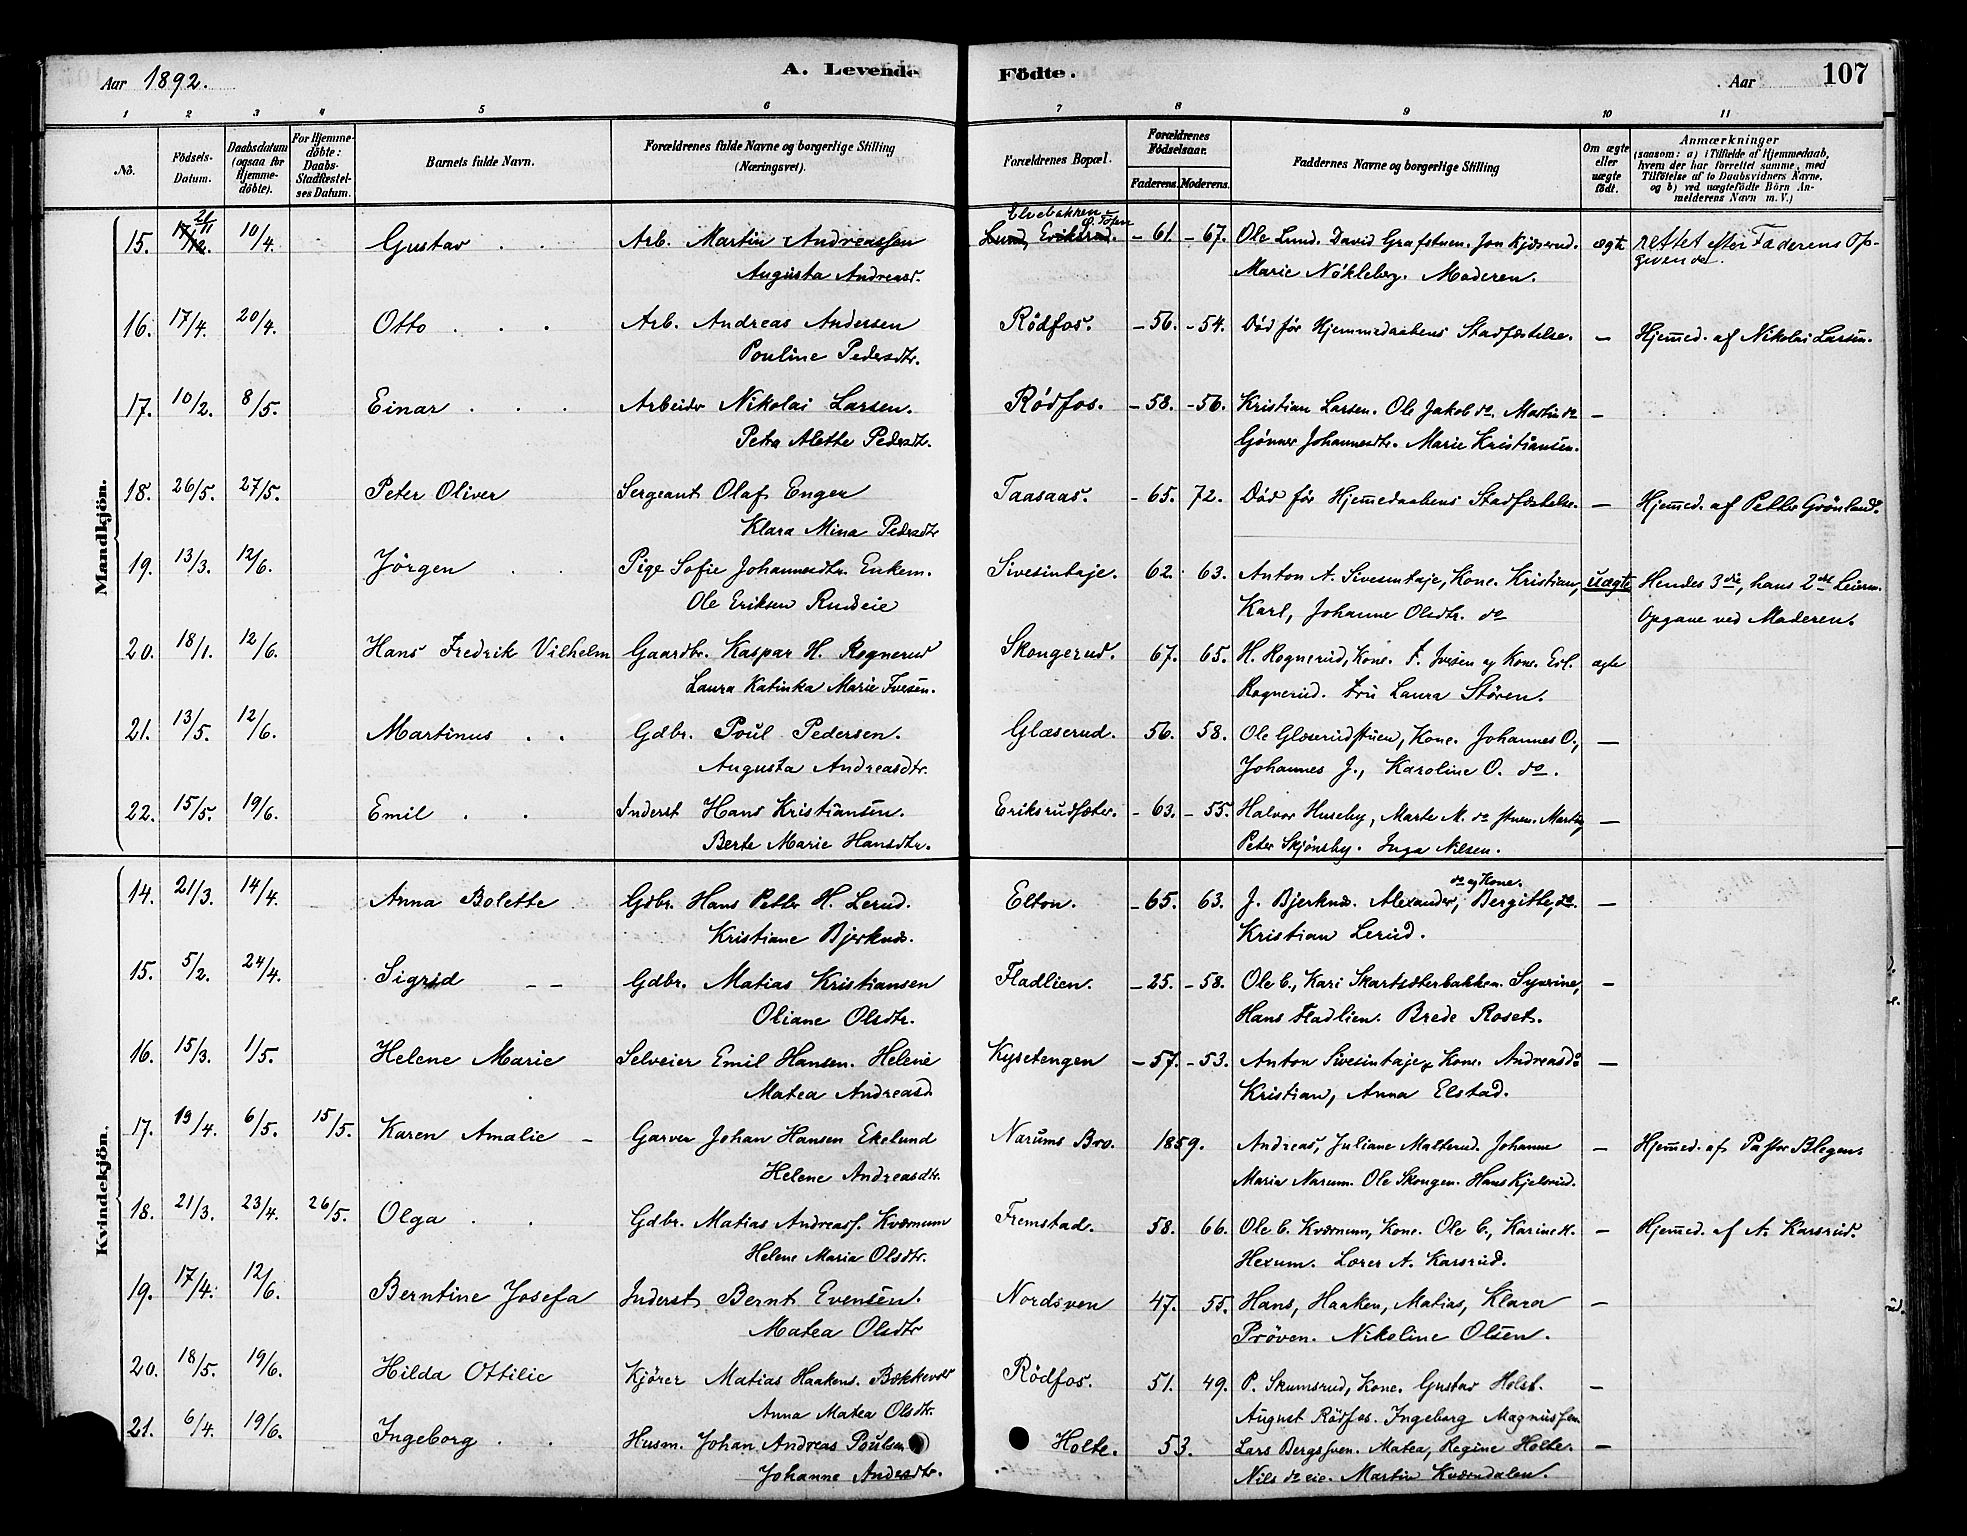 Aar 1892.
A. Levende Födte.
Aar
107
1 2 3 4 5 6 7 8 9 10 11
No.
Födsels-Datum.
Daabsdatum (ogsaa for Hjemme-döbte).
For Hjemme-döbte: Daabs-Stadfæstel-ses Datum.
Barnets fulde Navn.
Forældrenes fulde Navne og borgerlige Stilling (Næringsvei).
Forældrenes Bopæl.
Forældrenes Födselsaar.
Faderens. Moderens.
Faddernes Navne og borgerlige Stilling
Om ægte eller uægte födt.
Anmærkninger
(saasom: a) i Tilfælde af Hjemmedaab, hvem der har forrettet samme, med Tilföielse af to Daabsvidners Navne, og b) ved uægtefödte Börn An-melderens Navn m. V.)
Mandkjön.
15. 21/11 17/12. 10/4. Gustav Arb. Martin Andreassen Elvebakken Lund, Eriksrud. - 61. - 67. Ole Lund. David Grafstuen. Jon Kjöserud. ægte rettet efter Faderens Op-
Augusta Andreasd. Marie Nökleberg. Moderen. givende.
16. 17/4. 20/4. Otto Arb. Andreas Andersen Rödfos. - 56. - 54. Död för Hjemmedaabens Stadfæstelse. — Hjemmed. af Nikolai Larsen.
Pouline Pedersdtr.
17. 10/2. 8/5. Einar Arbeider Nikolai Larsen. Rödfos. - 58. - 56. Kristian Larsen. Ole Jakob do. Martin do —
Petra Alette Pedersdtr. Gönner Johannesdtr. Marie Kristiansen.
18. 26/5. 27/5. Peter Oliver Sergeant Olaf Enger Taasaas. - 65. 72. Död för Hjemmedaabens Stadfæstelse. — Hjemmed. af Petter Grönlund.
Klara Mina Pedersdtr
19. 13/3. 12/6. Jörgen Pige Sofie Johannesdtr. Enkem. Sivesintaje. 62. 63. Anton A. Sivesintaje, Kone. Kristian, uægte Hendes 3die, hans 2det Leierm.
Ole Eriksen Rudseie Karl, Johanne Olsdtr. do Opgave ved Moderen.
20. 18/1. 12/6. Hans Fredrik Vilhelm Gaardbr. Kaspar H. Rognerud Skongerud. 67. 65. H. Rognerud, Kone. F. Iversen og Kone. Edl. ægte
Laura Katinka Marie Iversen. Rognerud. Fru Laura Stören.
21. 13/5. 12/6. Martinus Gdbr. Poul Pedersen. Glæserud. 56. 58. Ole Glæserudstuen, Kone. Johannes O., —
Augusta Andreasdtr. Johannes J., Karoline O. do.
22. 15/5. 19/6. Emil Inderst Hans Kristiansen. Eriksrudsæter. - 63. - 55. Halvor Huseby, Marte M. do stuen. Martin, —
Berte Marie Hansdtr. Peter Skjönsby. Inga Nilsen.
Kvindekjön.
14. 21/3. 14/4. Anna Bolette Gdbr. Hans Petter H. Lerud. Elton. - 65. 63. J. Bjerknes. Alexander, do og Kone. Bergitte, do. —
Kristiane Bjerknes. Kristian Lerud.
15. 5/2. 24/4. Sigrid Gdbr. Matias Kristiansen Fladlien. - 25. - 58. Ole C., Kari Skartsæterbakken. Syverine, —
Oliane Olsdtr. Hans Fladlien. Brede Roset.
16. 15/3. 1/5. Helene Marie Selveier Emil Hansen. Helene Kysetengen - 57. - 53. Anton Sivesintaje, Kone. Andreas do —
Matea Andreasd. Kristian, Anna Elstad.
17. 19/4. 6/5. 15/5. Karen Amalie Garver Johan Hansen Ekelund Narums Bro. 1859. Andreas, Juliane Malterud. Johanne — Hjemmed. af Pastor Blegen.
Helene Andreasdtr. Maria Narum. Ole Skongen. Hans Kjelsrud.
18. 21/3. 23/4. 26/5. Olga Gdbr. Matias Andreass. Kværnum Fremstad. 58. 66. Ole C. Kværnum, Kone. Ole C., Karine H. — Hjemmed. af A. Karsrud.
Helene Maria Olsdtr. Hexum. Lærer A. Karsrud.
19. 17/4. 12/6. Berntine Josefa Inderst Bernt Evensen. Nordsven 47. 55. Hans, Haaken, Matias, Klara —
Matea Olsdtr Pröven. Nikoline Olsen.
20. 18/5. 19/6. Hilda Ottilie Kjörer Matias Haakens. Bækkevold Rödfos. 51. 49. P. Skumsrud, Kone. Gustav Holst. —
Anna Matea Olsdtr. August Rödfos. Ingeborg Magnussen
21. 6/4. 19/6. Ingeborg Husm. Johan Andreas Poulsen Holte. 53. Lars Bergssven. Matea, Regine Holter —
Johanne Andersdtr. Nils do eie. Martin Kværndalen.